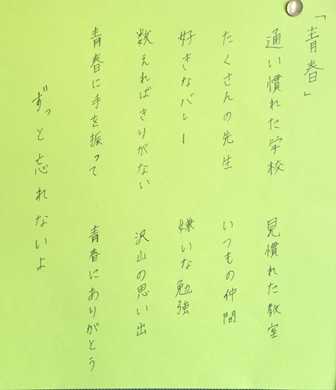 「青春」
通い慣れた学校　見慣れた教室
たくさんの先生　いつもの仲間
好きなバレー　嫌いな勉強
数えればきりがない　沢山の思い出
青春に手を振って　青春にありがとう
ずっと忘れないよ